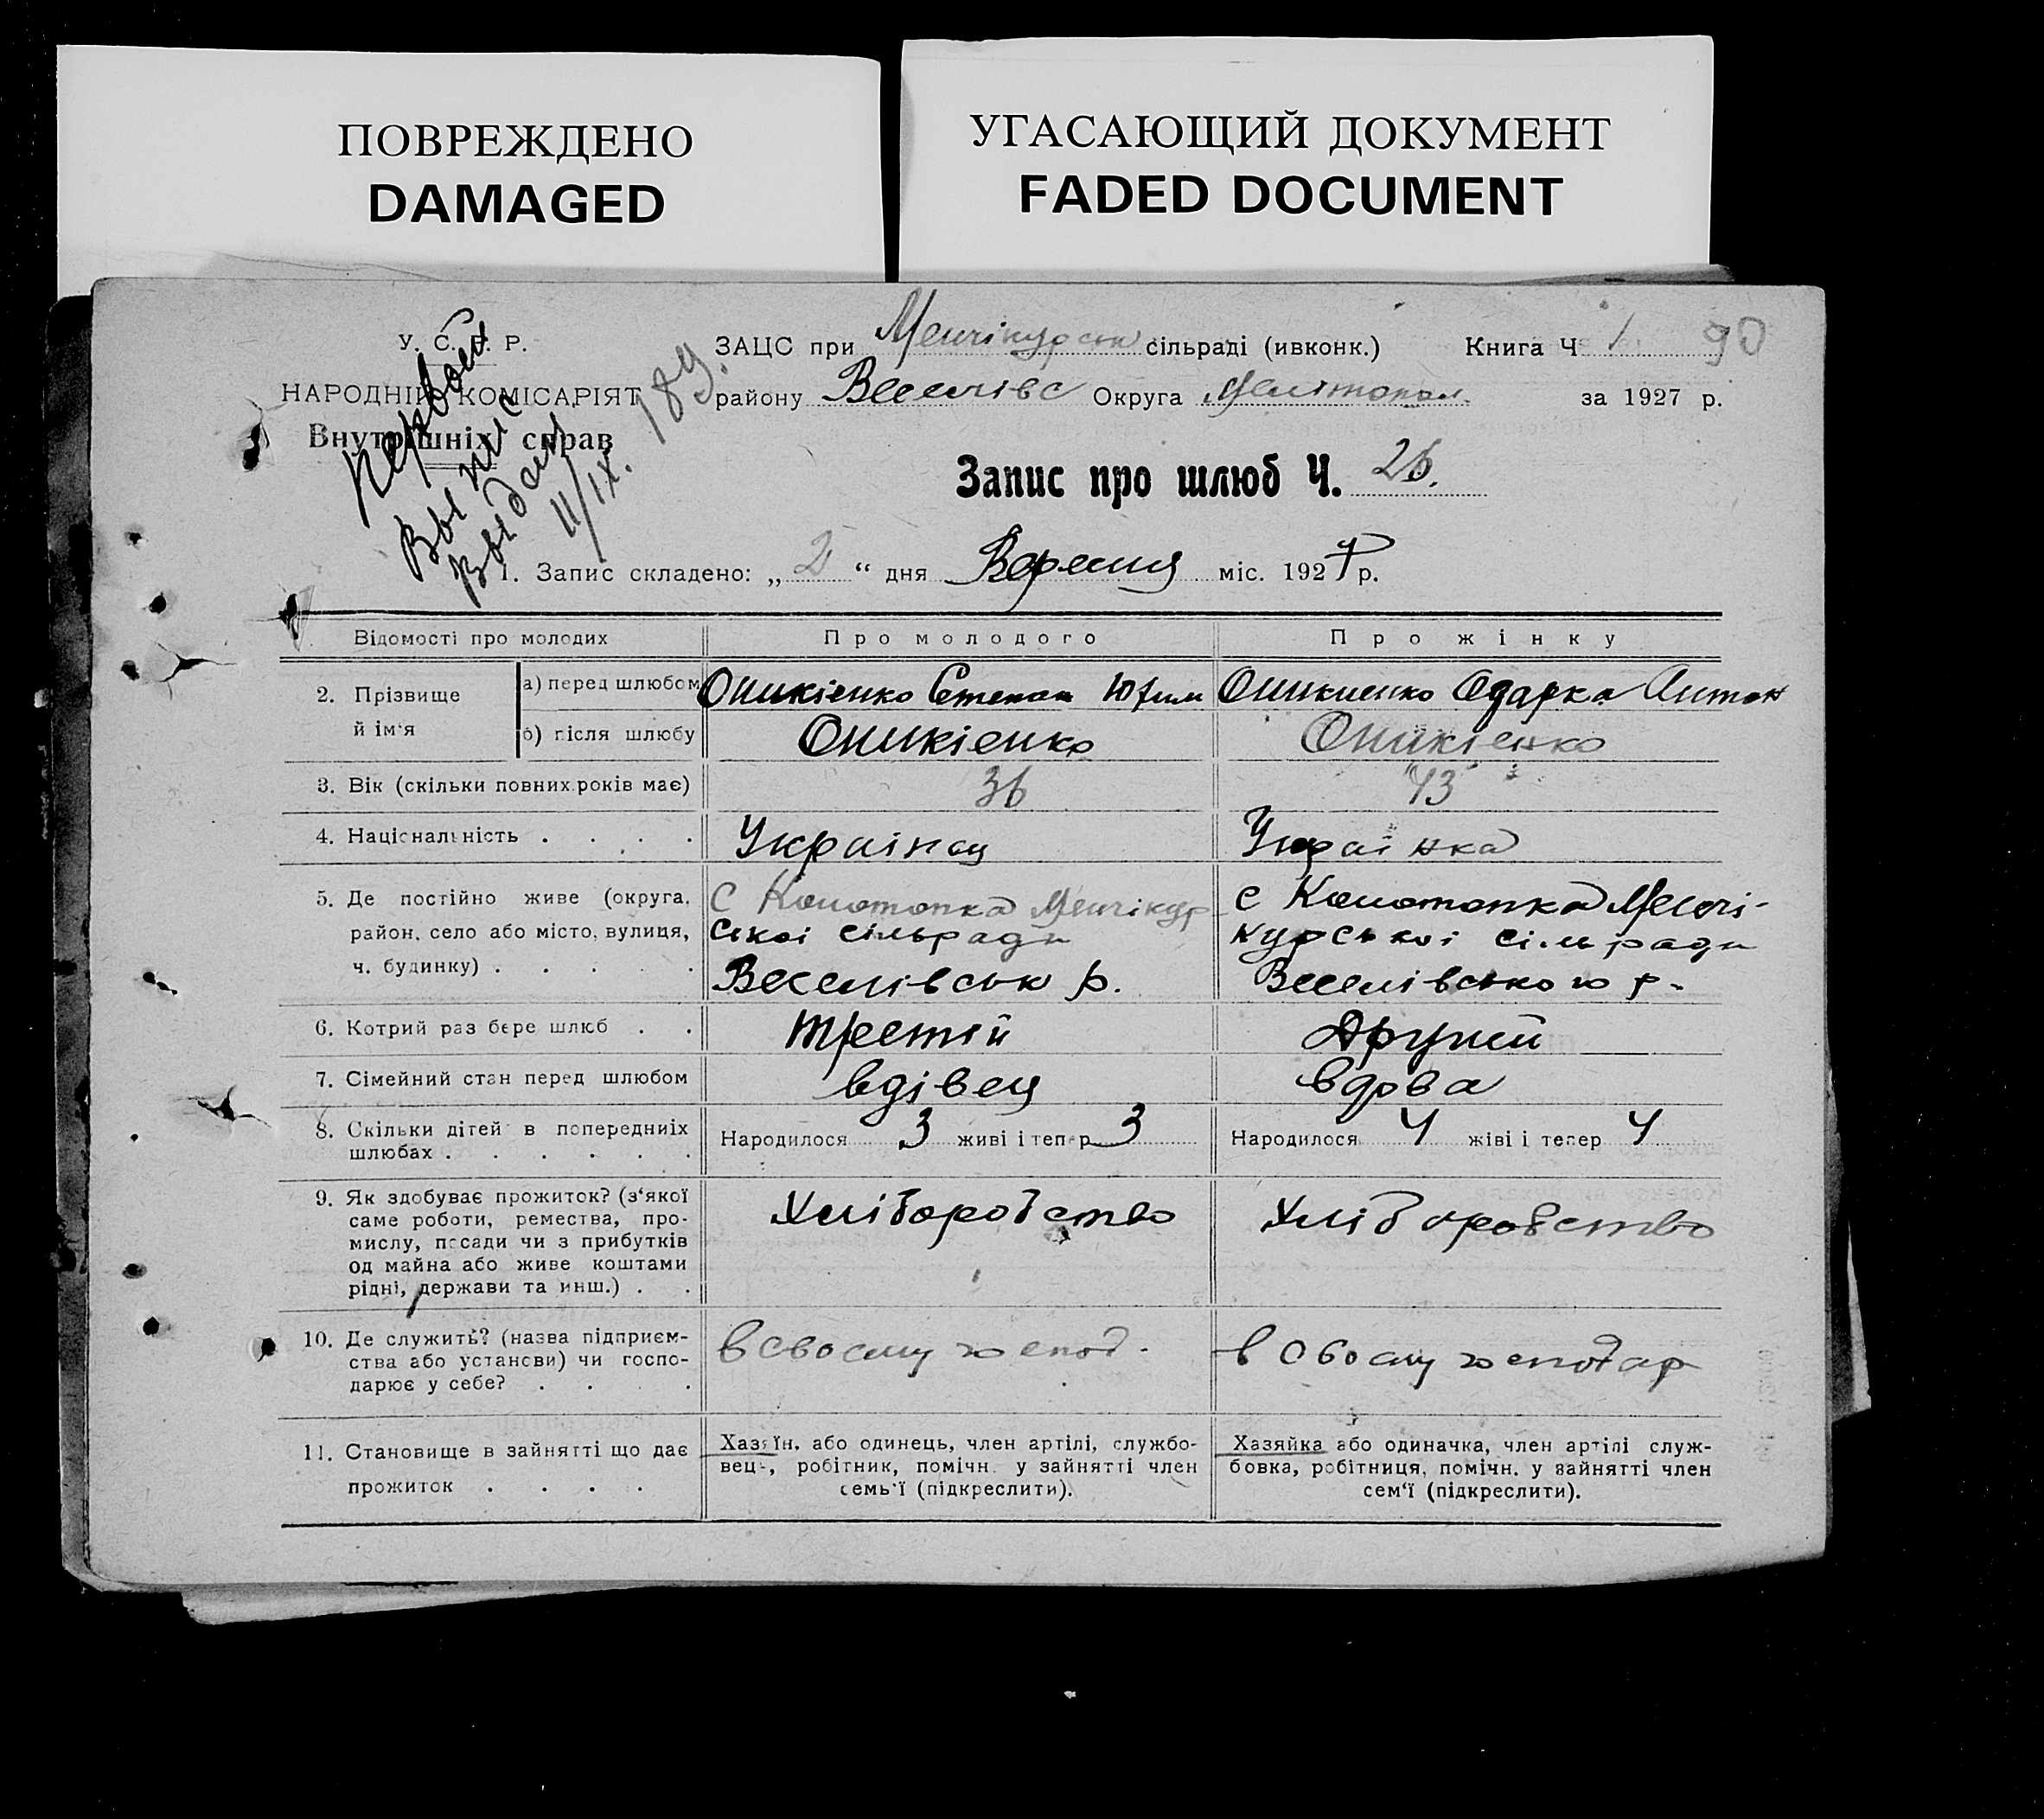 ПОВРЕЖДЕНО
DAMAGED
УГАСАЮЩИЙ ДОКУМЕНТ
FADED DOCUMENT
У. С. Р. Р.
НАРОДНІЙ КОМІСАРІЯТ
Внутрішніх справ
Первон
Выпис
Выдан
11/ІХ.
189.
ЗАЦС при Менчікурськ сільраді (ивконк.) Книга Ч 1 90
району Веселівс Округа Мелітопол. за 1927 р.
Запис про шлюб Ч. 26.
1. Запис складено: „ 2 “ дня Вересня міс. 1927 р.
Відомості про молодих Про молодого Про жінку
2. Прізвище й ім'я
а) перед шлюбом Оникієнко Степан Юхим Оникиенко Одарка Антон
б) після шлюбу Оникієнко Оникієнко
3. Вік (скільки повних років має) 36 43
4. Національність . . . . Українец Українка
5. Де постійно живе (округа,
район, село або місто, вулиця,
ч. будинку) . . . . .
с Конотопка Менчікур
ської сільради
Веселівськ р.
с Конотопка Менчі-
курської сільради
Веселівського р.
6. Котрий раз бере шлюб . . третій Другий
7. Сімейний стан перед шлюбом вдівец вдова
8. Скільки дітей в попередниіх
шлюбах . . . . . .
Народилося 3 живі і тепер 3
Народилося 4 жіві і тепер 4
9. Як здобуває прожиток? (з‘якої
саме роботи, ремества, про-
мислу, посади чи з прибутків
од майна або живе коштами
рідні, держави та инш.) . .
Хліборобство
Хліборобство
10. Де служить? (назва підприєм-
ства або установи) чи госпо-
дарює у себе? . . . .
в своєму господ.
в своєму господар
11. Становище в зайнятті що дає
прожиток . . . .
Хазяїн, або одинець, член артілі, службо-
вець, робітник, помічн. у зайнятті член
семь‘ї (підкреслити).
Хазяйка або одиначка, член артілі служ-
бовка, робітниця, помічн. у зайнятті член
сем‘ї (підкреслити).